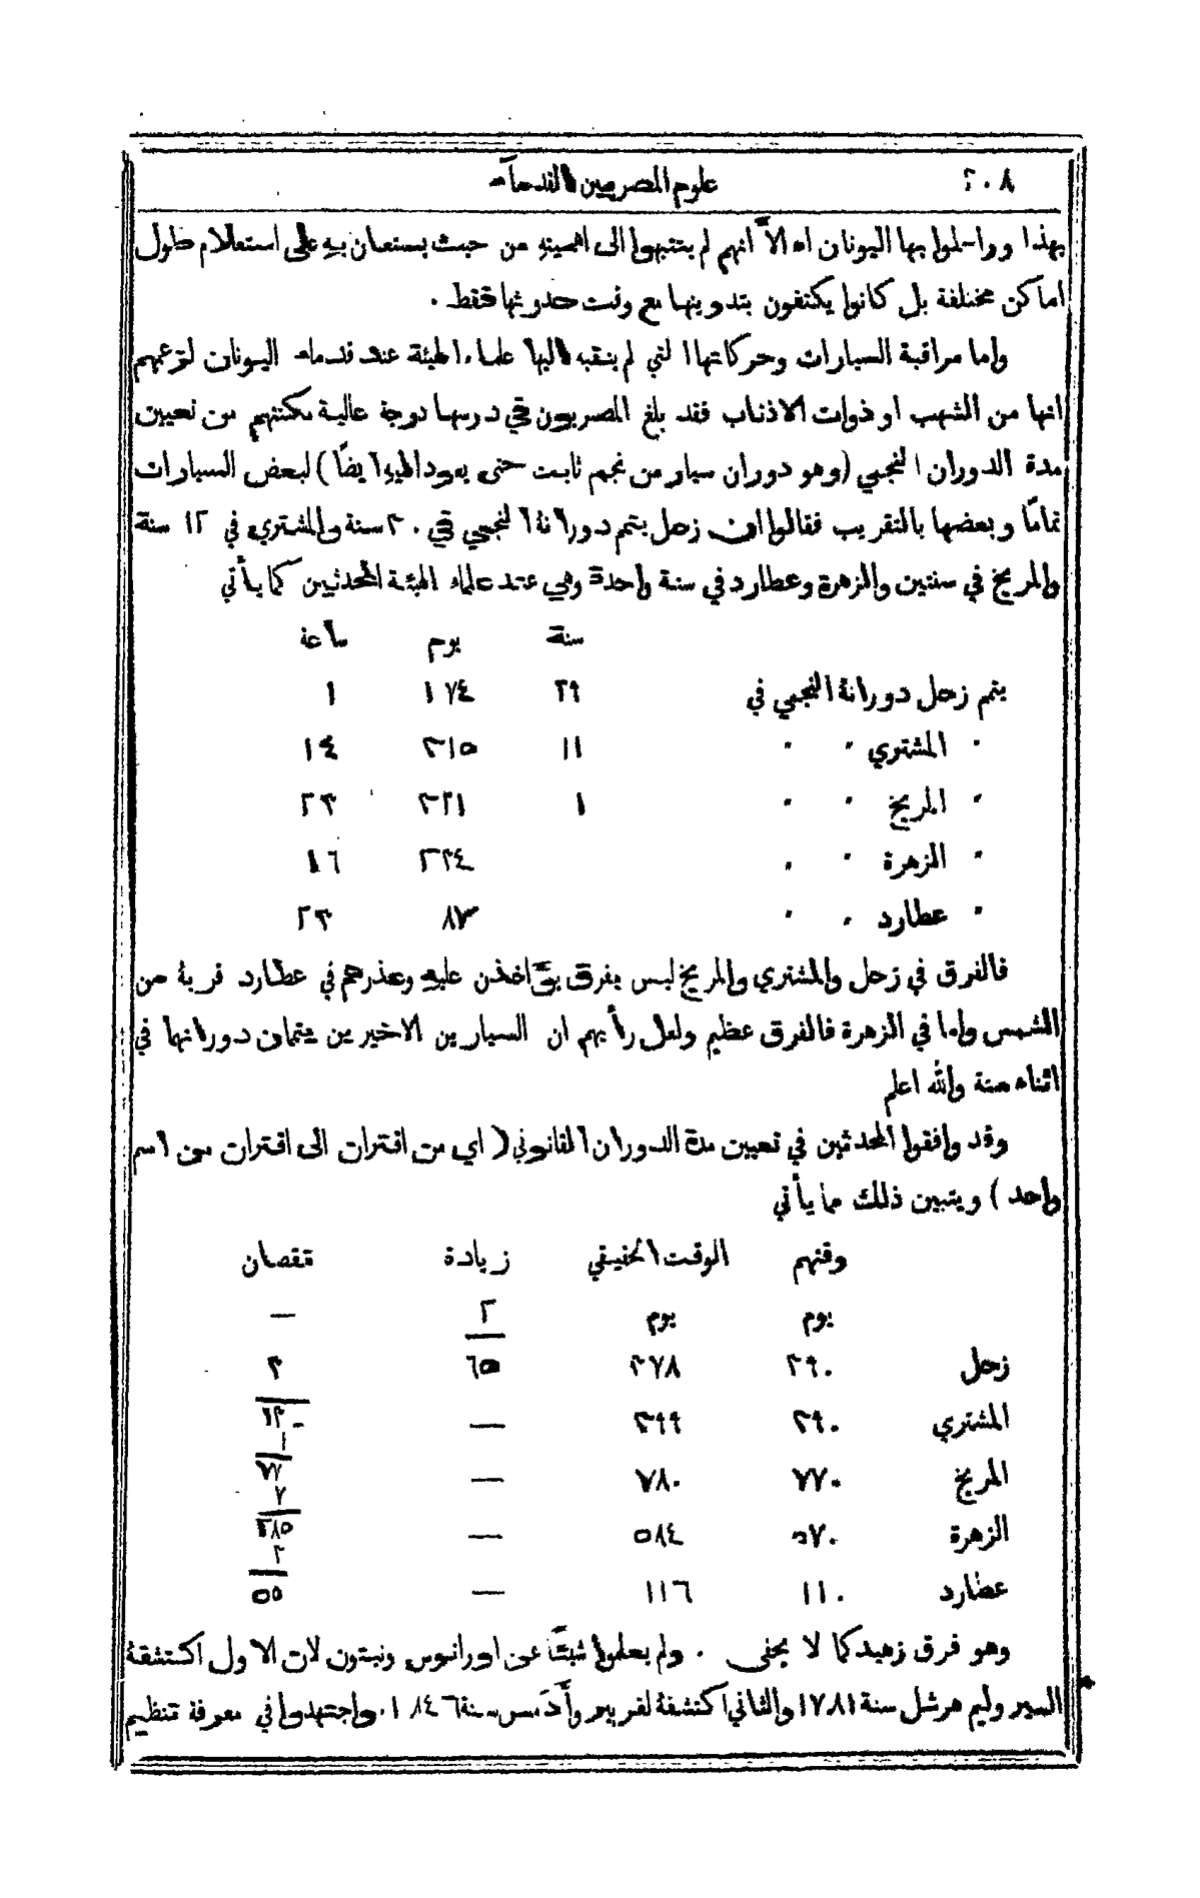 ٢٠٨ علوم المصريين القدماء
بهذا وواصلوا بها اليونان اه الاّ انهم لم ينتبهوا الى اهميته من حيث يستعان به على استعلام طول
اماكن مختلفة بل كانوا يكتفون بتدوينها مع وقت حدوثها فقط .
واما مراقبة السيارات وحركاتها التي لم ينتبه اليها علماء الهيئة عند قدماء اليونان لزعمهم
انها من الشهب او ذوات الاذناب فقد بلغ المصريون في درسها درجة عالية مكنتهم من تعيين
مدة الدوران النجمي (وهو دوران سيار من نجم ثابت حتى يعود اليه ايضًا) لبعض السيارات
تمامًا وبعضها بالتقريب فقالوا ان زحل يتم دورانهُ النجمي في ٣٠ سنة والمشتري في ١٢ سنة
والمريخ في سنتين والزهرة وعطارد في سنة واحدة وهي عند علماء الهيئة المحدثين كما يأتي
سنة يوم ساعة
يتم زحل دورانهُ النجمي في ٢٩ ١٧٤ ١
" المشتري " " ١١ ٣١٥ ١٤
" المريخ " " ١ ٣٢١ ٢٣
" الزهرة " " ٢٢٤ ١٦
" عطارد " " ٨٧ ٢٣
فالفرق في زحل والمشتري والمريخ ليس بفرق يؤاخذن عليه وعذرهم في عطارد قربهُ من
الشمس واما في الزهرة فالفرق عظيم ولعل رأيهم ان السيارين الاخيرين يتمان دورانها في
اثناء سنة والله اعلم
وقد وافقوا المحدثين في تعيين مدة الدوران القانوني (اي من اقتران الى اقتران من اسم
واحد) ويتبين ذلك مما يأتي
وقتهم الوقت الحقيقي زيادة نقصان
يوم يوم ٢ —
زحل ٣٩٠ ٣٧٨ ٦٥ ٣
المشتري ٣٩٠ ٣٩٩ — ١٣٠
١
المريخ ٧٧٠ ٧٨٠ — ٧٧
٧
الزهرة ٥٧٠ ٥٨٤ — ٢٨٥
٣
عطارد ١١٠ ١١٦ — ٥٥
وهو فرق زهيد كما لا يخفى . ولم يعلموا شيئًا عن اورانوس ونبتون لان الاول اكتشفهُ
السير وليم هرشل سنة ١٧٨١ والثاني اكتشفهُ لفرييه وأدمس سنة ١٨٤٦. واجتهدوا في معرفة تنظيم